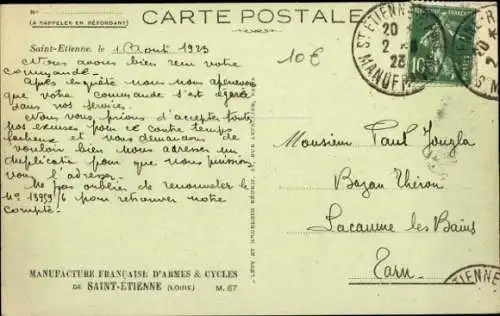 N°
(A RAPPELER EN RÉPONDANT)
CARTE POSTALE
Saint-Etienne, le 1 Août 1923
10€
Nous avons bien reçu votre
commande.
Après enquête nous nous apercevons
que votre commande s'est égarée
dans nos services.
Nous vous prions d'accepter toutes
nos excuses pour ce contre temps
facheux et vous demandons de
vouloir bien nous adresser un
duplicata pour que nous puissions
vous l'adresser.
Ne pas oublier de renouveler le
N° 13959/6 pour retrouver notre
compte.
MANUFACTURE FRANÇAISE D'ARMES & CYCLES
DE SAINT-ÉTIENNE (LOIRE) M. 67
ST ETIENNE
20
2 - 8
23
MANUF
10
Monsieur Paul Jougla
Bazar Théron
Lacaune les Bains
Tarn
ETIENNE